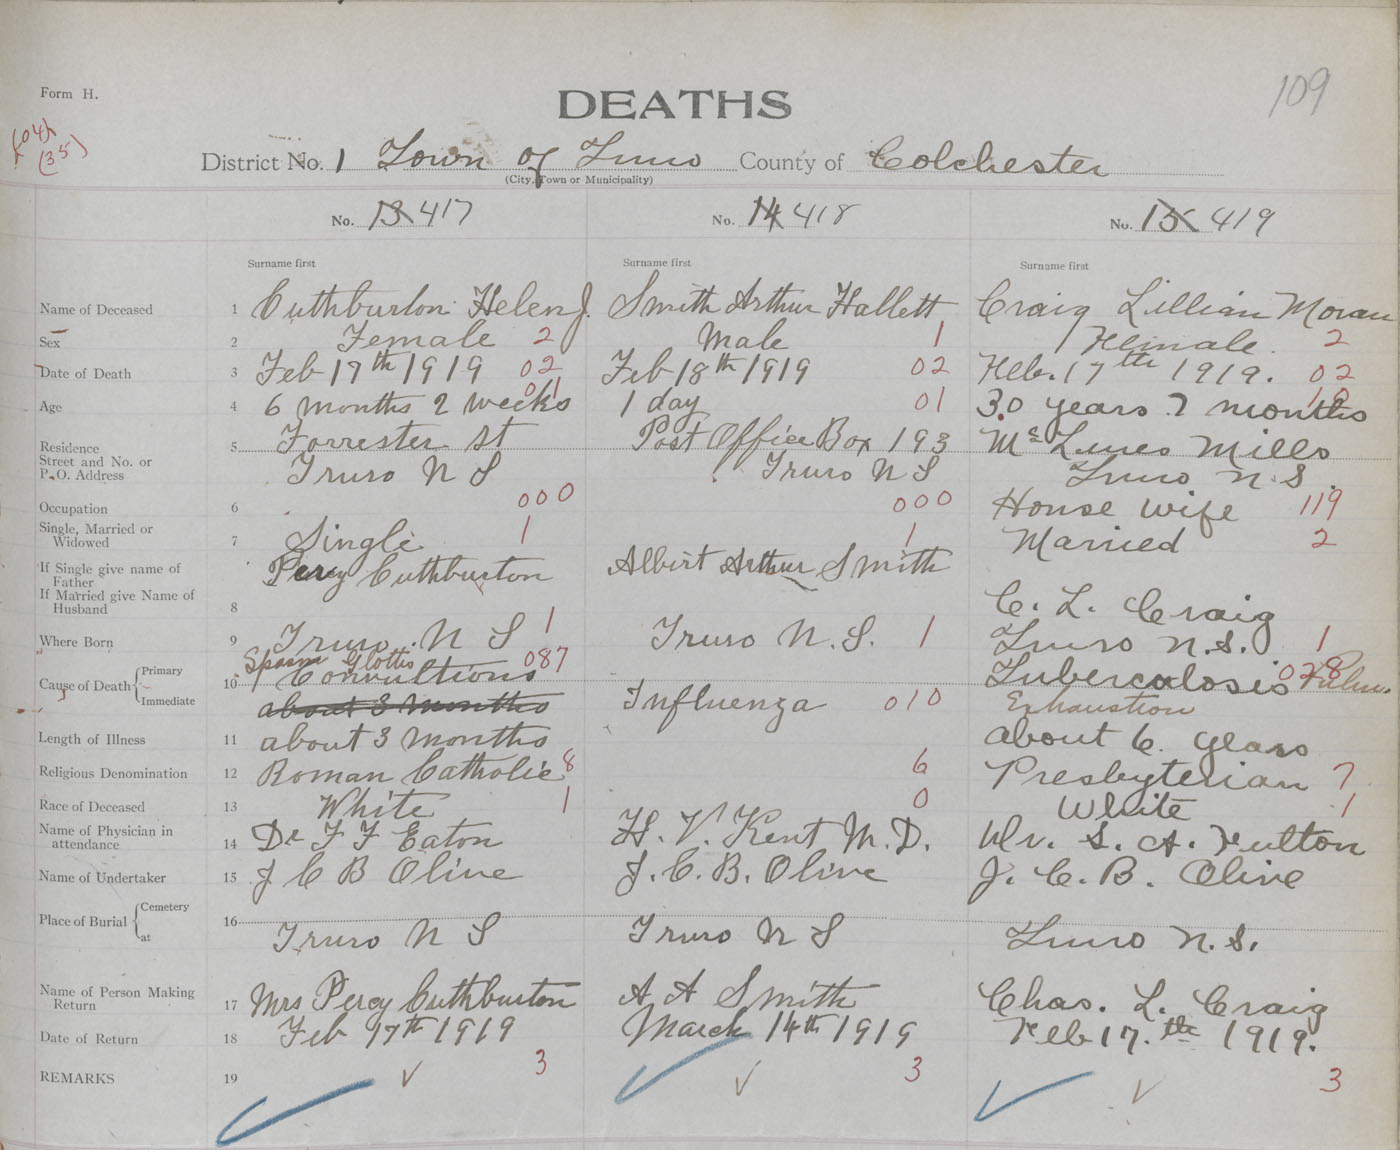 109
Form H.
DEATHS
(04)
(35)
District No. 1 Town of Truro County of Colchester
(City, Town or Municipality)
No. 13 417 No. 14 418 No. 15 419
Surname first Surname first Surname first
Name of Deceased 1 Cuthburton Helen J. Smith Arthur Hallett Craig Lillian Moran
Sex 2 Female 2 Male 1 Female 2
Date of Death 3 Feb 17th 1919 02 Feb 18th 1919 02 Feb. 17th 1919. 02
Age 4 6 months 2 weeks 01 1 day 01 30 years 7 months 10
Residence 5 Forrester St Post Office Box 193 Mills
Street and No. or
P.O. Address Truro N S Truro N S Truro N.S.
Occupation 6 000 000 House wife 119
Single, Married or
Widowed 7 Single 1 1 Married 2
If Single give name of
Father Percy Cuthburton Albert Arthur Smith
If Married give Name of
Husband 8 C. L. Craig
Where Born 9 Truro. N S 1 Truro N.S. 1 Truro N.S. 1
Spasm Glottis 087
Cause of Death Primary 10 Convultions Tuberculosis 028
Immediate about 3 months Influenza 010 Exhaustion
Length of Illness 11 about 3 months about 6 years
Religious Denomination 12 Roman Catholic 8 6 Presbyterian 7
Race of Deceased 13 White 1 0 White 1
Name of Physician in
attendance 14 Dr F F Eaton H. V. Kent M.D. Dr. S. A. Fulton
Name of Undertaker 15 J C B Olive J. C. B. Olive J. C. B. Olive
Place of Burial Cemetery 16
at Truro N S Truro N S Truro N.S.
Name of Person Making
Return 17 Mrs Percy Cuthburton A A Smith Chas. L. Craig
Date of Return 18 Feb 17th 1919 March 14th 1919 Feb 17.th 1919.
REMARKS 19 3 3 3